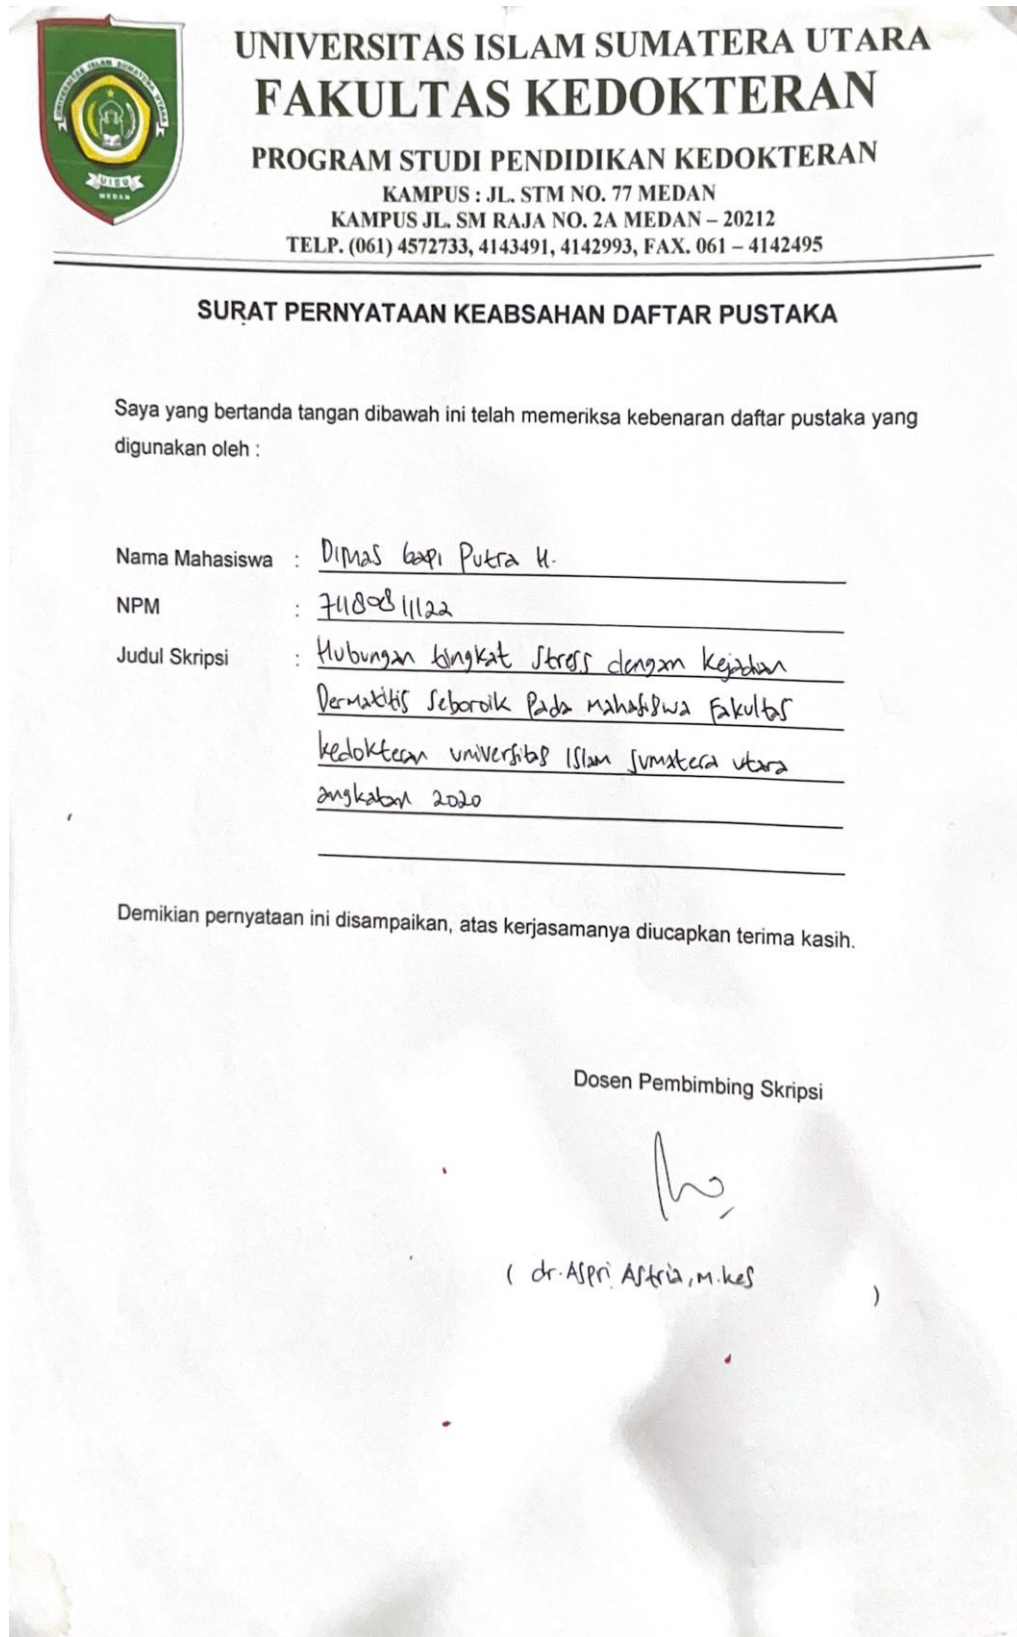 UNIVERSITAS ISLAM SUMATERA UTARA
FAKULTAS KEDOKTERAN
PROGRAM STUDI PENDIDIKAN KEDOKTERAN
KAMPUS : JL. STM NO. 77 MEDAN
KAMPUS JL. SM RAJA NO. 2A MEDAN – 20212
TELP. (061) 4572733, 4143491, 4142993, FAX. 061 – 4142495
UNIVERSITAS ISLAM SUMATERA UTARA
UISU
MEDAN
SURAT PERNYATAAN KEABSAHAN DAFTAR PUSTAKA
Saya yang bertanda tangan dibawah ini telah memeriksa kebenaran daftar pustaka yang
digunakan oleh :
Nama Mahasiswa : Dimas bapi Putra H.
NPM : 71180811122
Judul Skripsi : Hubungan tingkat Stress dengan Kejadian
Dermatitis Seboroik Pada Mahasiswa Fakultas
kedokteran universitas Islam Sumatera utara
angkatan 2020
Demikian pernyataan ini disampaikan, atas kerjasamanya diucapkan terima kasih.
Dosen Pembimbing Skripsi
( dr. Aspri Astria, M.kes )